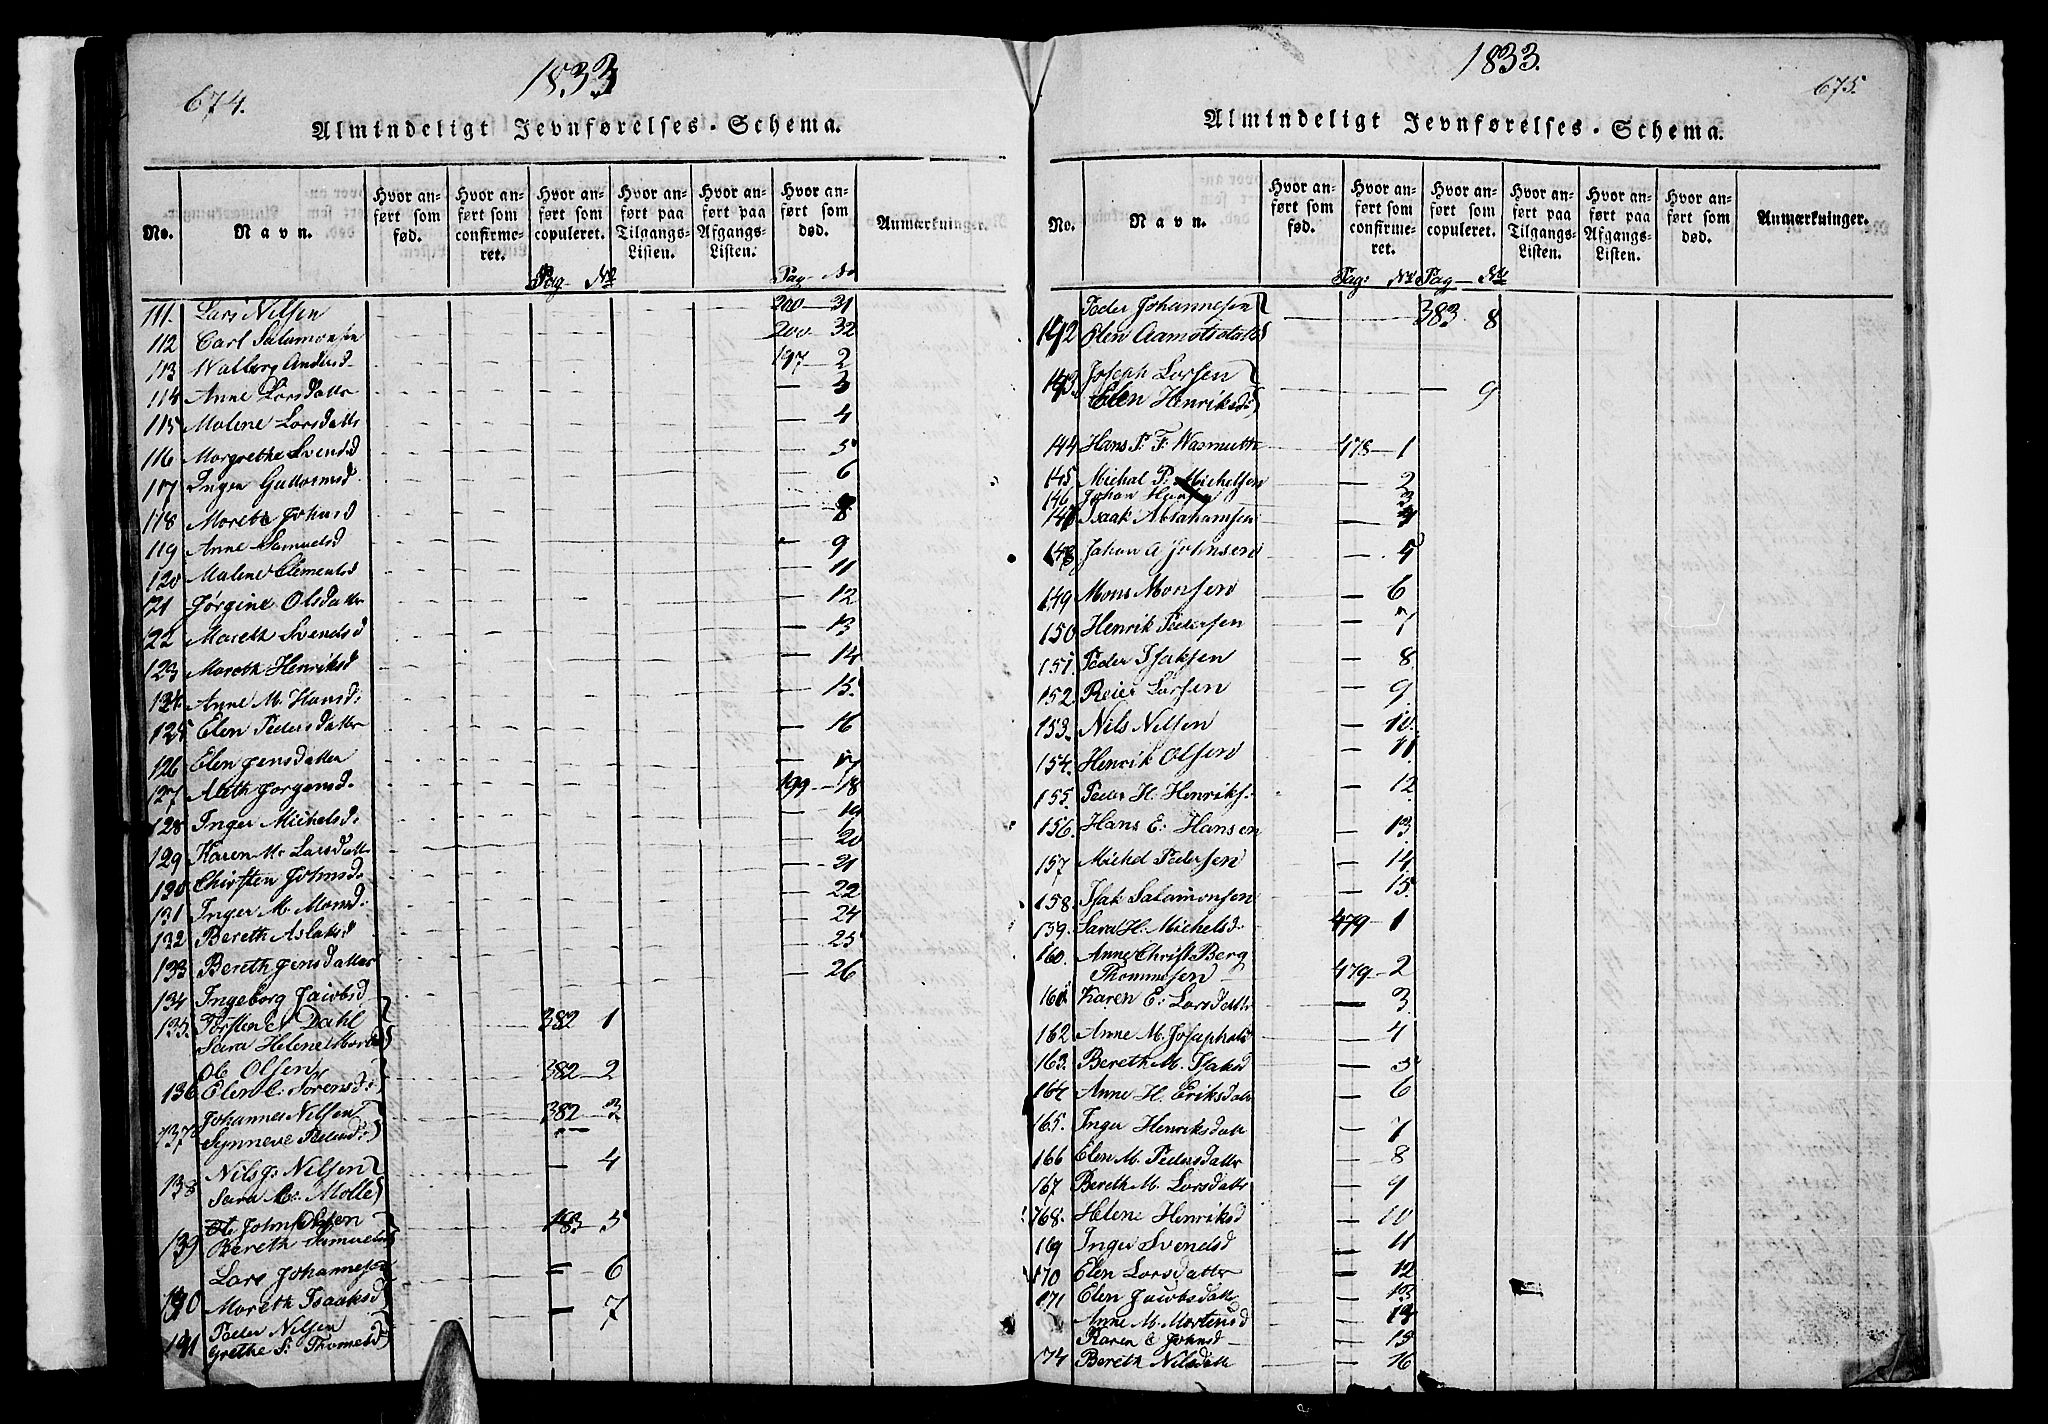 674.
1833
Almindeligt Jevnførelses-Schema.
No.
Navn.
Hvor anført som fød.
Hvor anført som confirmeret.
Hvor anført som copuleret.
Hvor anført paa Tilgangs-Listen.
Hvor anført paa Afgangs-Listen.
Hvor anført som død.
Anmærkninger.
Pag- No
Pag- No
111. Lars Nilsen 200 - 31
112 Carl Salamonsen 200 - 32
113 Walborg Andersd 197 - 2
114 Anne Larsdattr — 3
115 Malene Larsdattr — 4
116 Margrethe Svendsd — 5
117 Inger Guttormsd — 6
118 Mareth Johnsd — 8
119 Anne Samuelsd — 9
120 Malene Clementsd — 11
121 Jørgine Olsdatter — 12
122 Mareth Svendsd — 13
123 Mareth Henriksd — 14
124 Anne M. Hansd: — 15.
125 Elen Pedersdattr — 16
126 Elen Jensdatter — 17
127 Aleth Jørgensd. 199 - 18
128 Inger Michelsd: — 19
129 Karen M. Larsdattr — 20
130 Chirsten Johnsd. — 21
131 Inger M. Monsd. — 22
132 Bereth Aslaksd — 24
133 Bereth Jensdatter — 25
134 Ingeborg Jacobsd — 26
135. Torsten Dahl 382 1
Sara Helene
Ole Olsen 382 - 2
136 Elen C: Sørensd:
Johannes Nilsen 382 - 3
137 Synneve Pedersd:
Nils J: Nilsen — 4
138 Sara C: Molle
Ole John Olsen 183 - 5
139 Bereth Samuelsd
Lars Johannesen — 6
140 Mareth Isaaksd — 7
141 Peder Nilsen
Grethe S: Thomesd
1833.
675.
Almindeligt Jevnførelses-Schema.
No.
Navn.
Hvor anført som fød.
Hvor anført som confirmeret.
Hvor anført som copuleret.
Hvor anført paa Tilgangs-Listen.
Hvor anført paa Afgangs-Listen.
Hvor anført som død.
Anmærkninger.
Pag: No Pag - No
Peder Johannesen 383 8
142 Elen
143. Joseph Larsen — 9
Elen Henriksd:
144 Hans P. F: Wasmuth 478 - 1
145 Michal P: Michelsen — 2
146 Johan Hansen — 3
147 Isaak Abrahamsen — 4
148 Johan A Johnsen — 5
149 Mons Monsen — 6
150 Henrik Pedersen — 7
151. Peder Isaksen — 8
152. Reier Larsen — 9
153. Nils Nilsen — 10
154. Henrik Olsen — 11
155. Peder H. Henriks. — 12
156. Hans E: Hansen — 13
157 Michel Pedersen — 14
158. Isak Salamonsen — 15
159. Sara H. Michelsd. 479 - 1
160. Anne Christ Berg
Thommesen 479 - 2
161 Karen E: Larsdattr — 3.
162 Anne M. Josephsd — 4
163. Bereth M. Isaksd — 5
164 Anne H. Eriksdattr — 6
165. Inger Henriksdattr — 7
166 Elen M. Pedersdattr — 8
167 Bereth M. Larsdattr — 9
168. Helene Henriksd — 10
169 Inger Svendsd — 11
170 Elen Larsdattr — 12
171 Elen Jacobsdattr — 13
Anne M. Mortensd — 14
Karen E Johnsd — 15
174 Bereth Nilsdattr — 16